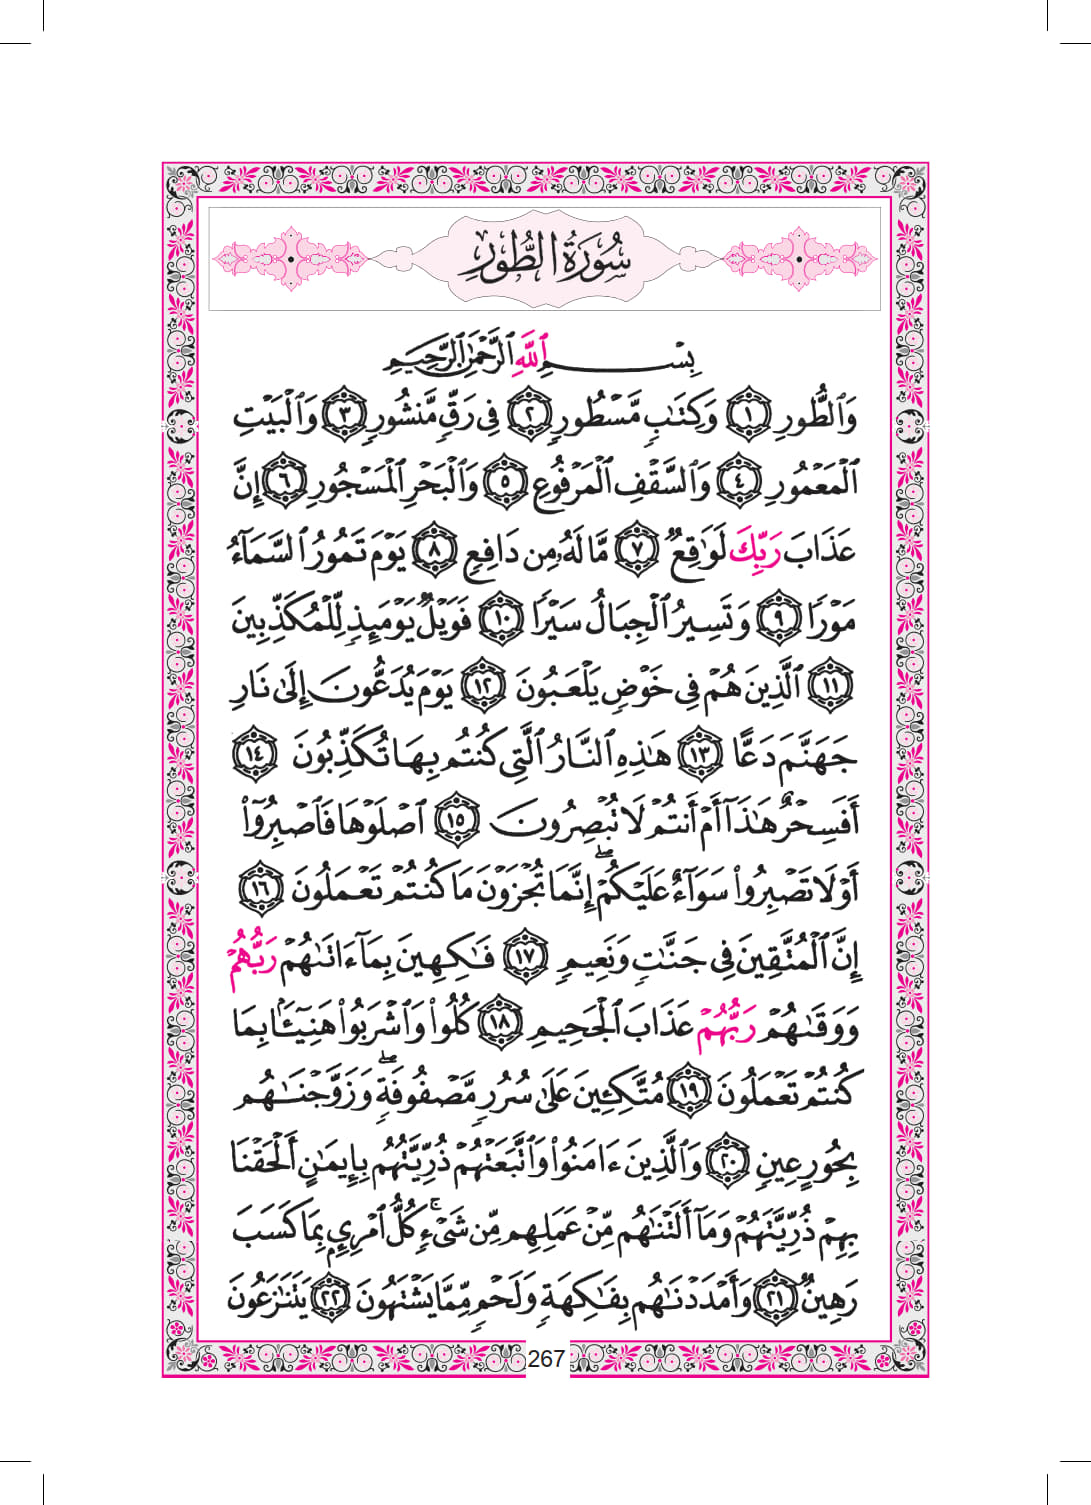 سُورَةُ الطُّورِ
بِسْمِ اللَّهِ الرَّحْمَٰنِ الرَّحِيمِ
وَٱلطُّورِ ١ وَكِتَٰبٍ مَّسْطُورٍ ٢ فِى رَقٍّ مَّنشُورٍ ٣ وَٱلْبَيْتِ
ٱلْمَعْمُورِ ٤ وَٱلسَّقْفِ ٱلْمَرْفُوعِ ٥ وَٱلْبَحْرِ ٱلْمَسْجُورِ ٦ إِنَّ
عَذَابَ رَبِّكَ لَوَٰقِعٌ ٧ مَّا لَهُۥ مِن دَافِعٍ ٨ يَوْمَ تَمُورُ ٱلسَّمَآءُ
مَوْرًا ٩ وَتَسِيرُ ٱلْجِبَالُ سَيْرًا ١٠ فَوَيْلٌ يَوْمَئِذٍ لِّلْمُكَذِّبِينَ
١١ ٱلَّذِينَ هُمْ فِى خَوْضٍ يَلْعَبُونَ ١٢ يَوْمَ يُدَعُّونَ إِلَىٰ نَارِ
جَهَنَّمَ دَعًّا ١٣ هَٰذِهِ ٱلنَّارُ ٱلَّتِى كُنتُم بِهَا تُكَذِّبُونَ ١٤
أَفَسِحْرٌ هَٰذَآ أَمْ أَنتُمْ لَا تُبْصِرُونَ ١٥ ٱصْلَوْهَا فَٱصْبِرُوٓا۟
أَوْ لَا تَصْبِرُوا۟ سَوَآءٌ عَلَيْكُمْ ۖ إِنَّمَا تُجْزَوْنَ مَا كُنتُمْ تَعْمَلُونَ ١٦
إِنَّ ٱلْمُتَّقِينَ فِى جَنَّٰتٍ وَنَعِيمٍ ١٧ فَٰكِهِينَ بِمَآ ءَاتَىٰهُمْ رَبُّهُمْ
وَوَقَىٰهُمْ رَبُّهُمْ عَذَابَ ٱلْجَحِيمِ ١٨ كُلُوا۟ وَٱشْرَبُوا۟ هَنِيٓـًٔۢا بِمَا
كُنتُمْ تَعْمَلُونَ ١٩ مُتَّكِـِٔينَ عَلَىٰ سُرُرٍ مَّصْفُوفَةٍ ۖ وَزَوَّجْنَٰهُم
بِحُورٍ عِينٍ ٢٠ وَٱلَّذِينَ ءَامَنُوا۟ وَٱتَّبَعَتْهُمْ ذُرِّيَّتُهُم بِإِيمَٰنٍ أَلْحَقْنَا
بِهِمْ ذُرِّيَّتَهُمْ وَمَآ أَلَتْنَٰهُم مِّنْ عَمَلِهِم مِّن شَىْءٍ ۚ كُلُّ ٱمْرِئٍۭ بِمَا كَسَبَ
رَهِينٌ ٢١ وَأَمْدَدْنَٰهُم بِفَٰكِهَةٍ وَلَحْمٍ مِّمَّا يَشْتَهُونَ ٢٢ يَتَنَٰزَعُونَ
267